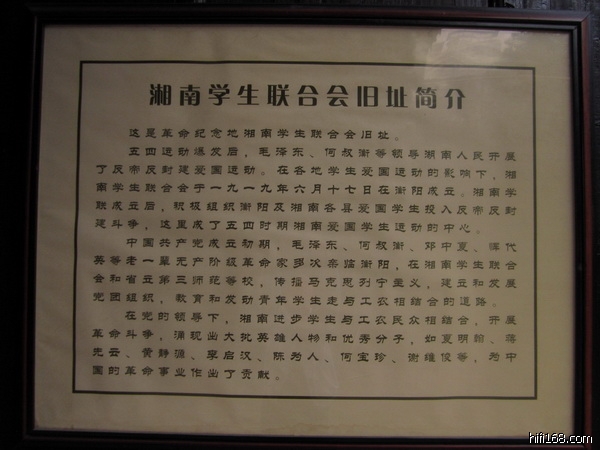 湘南学生联合会旧址简介
这是革命纪念地湘南学生联合会旧址。
五四运动爆发后，毛泽东、何叔衡等领导湖南人民开展
了反帝反封建爱国运动。在各地学生爱国运动的影响下，湘
南学生联合会于一九一九年六月十七日在衡阳成立。湘南学
联成立后，积极组织衡阳及湘南各县爱国学生投入反帝反封
建斗争，这里成了五四时期湘南爱国学生运动的中心。
中国共产党成立初期，毛泽东、何叔衡、邓中夏、恽代
英等老一辈无产阶级革命家多次亲临衡阳，在湘南学生联合
会和省立第三师范等校，传播马克思列宁主义，建立和发展
党团组织，教育和发动青年学生走与工农相结合的道路。
在党的领导下，湘南进步学生与工农民众相结合，开展
革命斗争，涌现出大批英雄人物和优秀分子，如夏明翰、蒋
先云、黄静源、李启汉、陈为人、何宝珍、谢维俊等，为中
国的革命事业作出了贡献。
hifi168.com